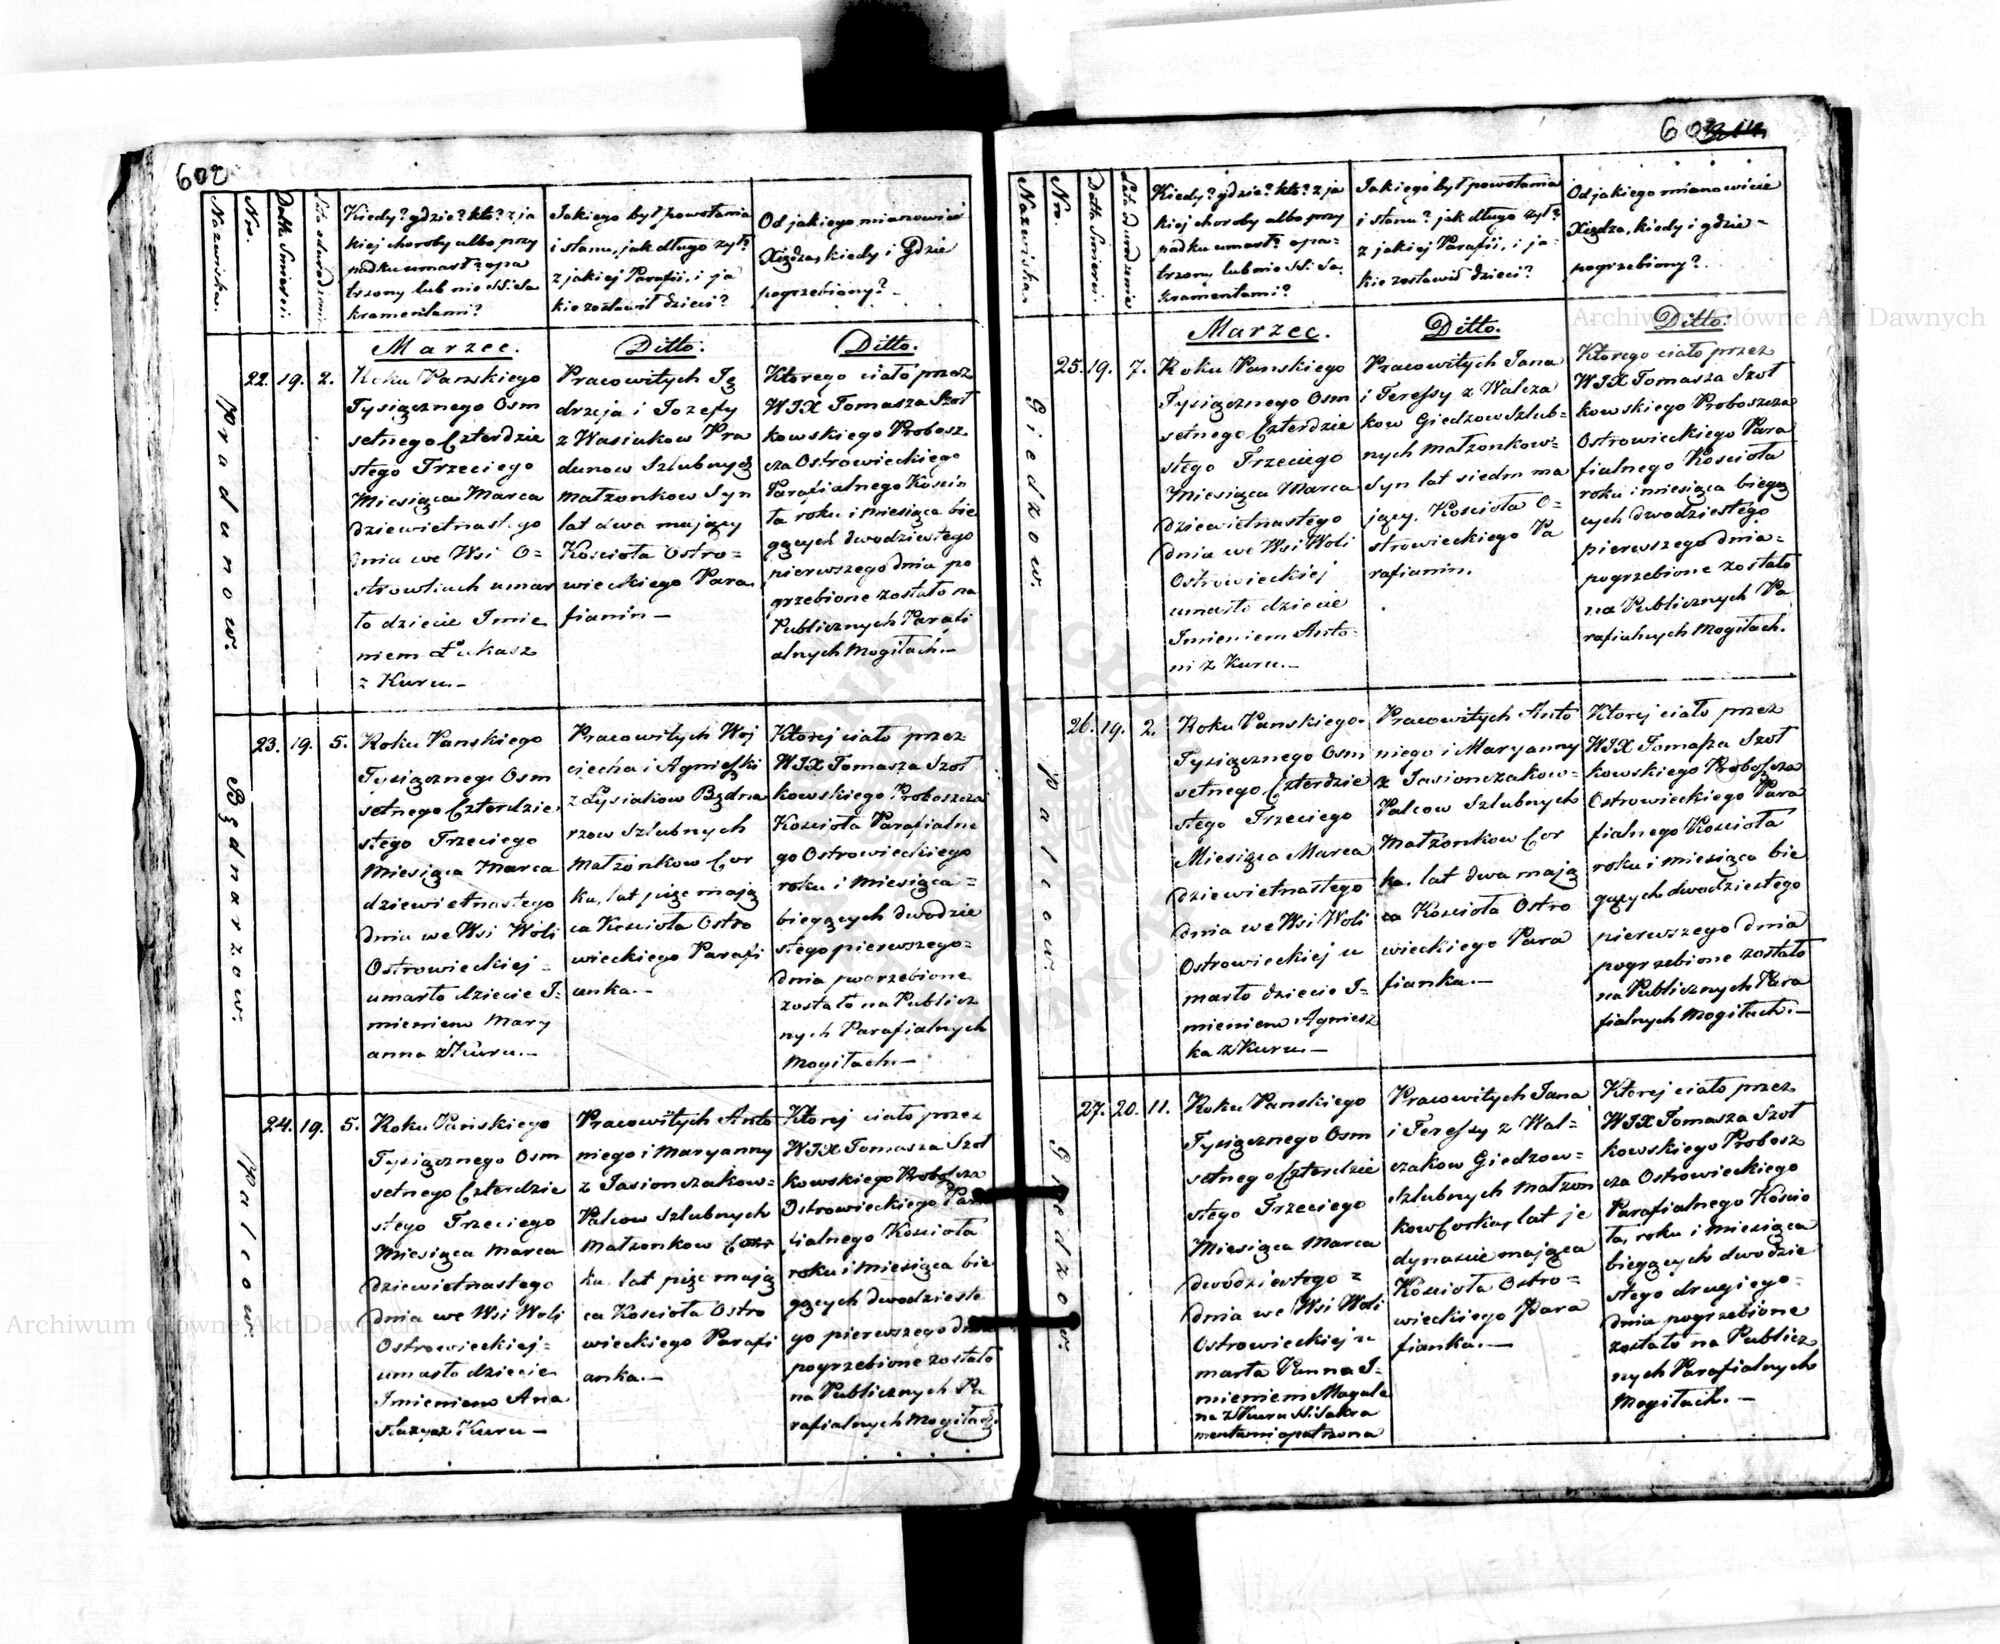 602
Nazwiska.
Nro.
Datta Smierci.
Lata od urodzenia.
Kiedy? gdzie? kto? z ja
kiej choroby albo przy
padku umarł? opa
trzony lub nie SS. Sa
kramentami?
Jakiego był powołania
i stanu, jak długo żył?
z jakiej Parafii, i ja
kie zostawił dzieci?
Od jakiego mianowicie
Xiędza, kiedy i Gdzie
pogrzebiony?
Marzec.
Ditto.
Ditto.
Pradunow.
22. 19. 2.
Roku Panskiego
Tysiącznego Osm
setnego Czterdzie
stego Trzeciego
Miesiąca Marca
dziewietnastego
dnia we Wsi O=
strowkach umar
ło dziecie Imie
niem Łukasz
z Kuru.—
Pracowitych Ję
drzeja i Jozefy
z Wasiakow Pra
dunow Szlubnych
Małzonkow Syn
lat dwa mający
Kościoła Ostro=
wieckiego Para
fianin—
Ktorego ciało przez
WJX Tomasza Szoł
kowskiego Probosz
cza Ostrowieckiego
Parafialnego Kościo
ła roku i miesiąca bie
gących dwodziestego
pierwszego dnia po
grzebione zostało na
Publicznych Parafi
alnych Mogiłach.—
Bednarzow.
23. 19. 5.
Roku Panskiego
Tysiącznego Osm
setnego Czterdzie
stego Trzeciego
Miesiąca Marca
dziewietnastego
dnia we Wsi Woli
Ostrowieckiej=
umarło dziecie I=
mieniem Mary
anna z Kuru.—
Pracowitych Woj
ciecha i Agnieszki
z Łysiakow Będna
rzow Szlubnych
Małzonkow Cor
ka, lat pięc mają
ca Kościoła Ostro
wieckiego Parafi
anka.—
Ktorej ciało przez
WJX Tomasza Szoł
kowskiego Proboszcza
Kościoła Parafialne
go Ostrowieckiego
roku i Miesiąca=
biegących dwodzie
stego pierwszego=
dnia pogrzebione
zostało na Publicz
nych Parafialnych
Mogiłach.—
Palcow.
24. 19. 5.
Roku Pańskiego
Tysiącznego Osm
setnego Czterdzie
stego Trzeciego
Miesiąca Marca
dziewietnastego
dnia we Wsi Woli
Ostrowieckiej=
umarło dziecie
Imieniem Ana
stazya z Kuru—
Pracowitych Anto
niego i Maryanny
z Jasionczakow=
Palcow Szlubnych
Małzonkow Cor
ka, lat pięc mają
ca Kościoła Ostro
wieckiego Parafi
anka.—
Ktorej ciało przez
WJX Tomasza Szoł
kowskiego Proboszcza
Ostrowieckiego Para
fialnego Kościoła
roku i miesiąca bie
gących dwodzieste
go pierwszego dnia
pogrzebione zostało
na Publicznych Pa
rafialnych Mogiłach.
603
Nazwiska.
Nro.
Datta Smierci.
Lata od urodzenia
Kiedy? gdzie? kto? z ja
kiej choroby albo przy
padku umarł? opa=
trzony lub nie SS. Sa
kramentami?
Jakiego był powołania
i stanu? jak długo żył?
z jakiej Parafii, i ja=
kie zostawił dzieci?
Od jakiego mianowicie
Xiędza, kiedy i gdzie=
pogrzebiony?
Marzec.
Ditto.
Ditto.
Giedzow.
25. 19. 7.
Roku Panskiego
Tysiącznego Osm
setnego Czterdzie
stego Trzeciego
Miesiąca Marca
dziewietnastego
dnia we Wsi Woli
Ostrowieckiej
umarło dziecie
Imieniem Anto=
ni z Kuru.—
Pracowitych Jana
i Teressy z Walcza
kow Giedzow Szlub=
nych Małzonkow=
Syn lat siedm ma
jący. Kościoła O=
strowieckiego Pa
rafianin.
Ktorego ciało przez
WJX Tomasza Szoł
kowskiego Proboszcza
Ostrowieckiego Para
fialnego Kościoła
roku i miesiąca biegą
cych dwodziestego
pierwszego dnia=
pogrzebione zostało
na Publicznych Pa
rafialnych Mogiłach.
Palcow.
26. 19. 2.
Roku Panskiego
Tysiącznego Osm
setnego Czterdzie
stego Trzeciego
Miesiąca Marca
dziewietnastego
dnia we Wsi Woli
Ostrowieckiej u
marło dziecie I=
mieniem Agniesz
ka z Kuru.—
Pracowitych Anto
niego i Maryanny
z Jasionczakow=
Palcow Szlubnych
Małzonkow Cor
ka, lat dwa mają
ca Kościoła Ostro
wieckiego Para
fianka.—
Ktorej ciało przez
WJX Tomasza Szoł
kowskiego Proboszcza
Ostrowieckiego Para
fialnego Kościoła
roku i miesiąca bie
gących dwodziestego
pierwszego dnia
pogrzebione zostało
na Publicznych Para
fialnych Mogiłach.—
Giedzow.
27. 20. 11.
Roku Panskiego
Tysiącznego Osm
setnego Czterdzie
stego Trzeciego
Miesiąca Marca
dwodziestego=
dnia we Wsi Woli
Ostrowieckiej u
marła Panna I=
mieniem Magdale
na z Kuru SS. Sakra
mentami opatrzona
Pracowitych Jana
i Teressy z Wal=
czakow Giedzow=
Szlubnych Małzon
kow Corka, lat je
dynascie mająca
Kościoła Ostro=
wieckiego Para
fianka.—
Ktorej ciało przez
WJX Tomasza Szoł
kowskiego Probosz
cza Ostrowieckiego
Parafialnego Kościo
ła, roku i miesiąca
biegących dwodzie
stego drugiego=
dnia pogrzebione
zostało na Publicz
nych Parafialnych
Mogiłach.—
Archiwum Główne Akt Dawnych
Archiwum Główne Akt Dawnych